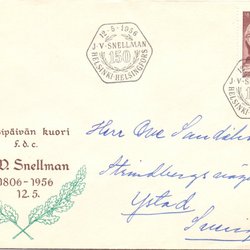 12.5.1956
J.V. SNELLMAN
150
HELSINKI-HELSINGFORS
ipäivän kuori
f.d.c.
V. Snellman
1806-1956
12.5.
Herr Ove
Strindbergs
Ystad